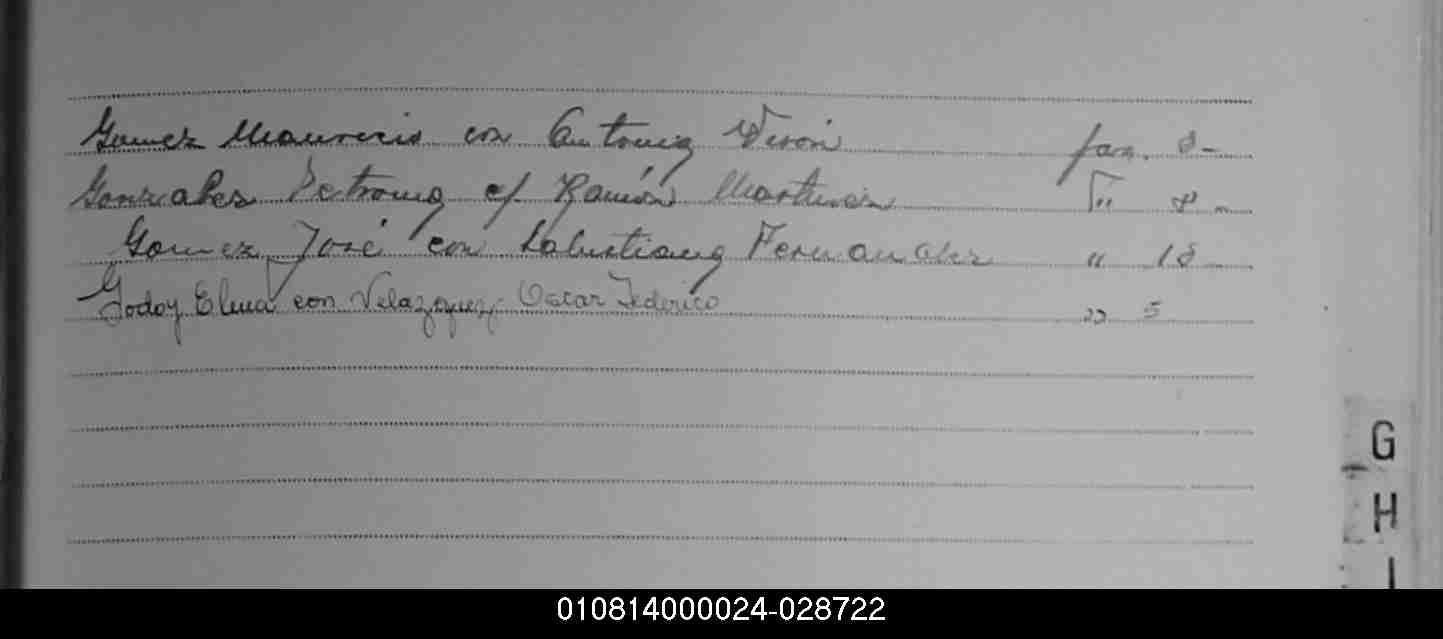 Gomez Mauricio con Antonia Veron fax. 8-
Gonzales Petrona c/ Ramón Martinez " 8-
Gomez José con Salustiana Fernandez " 18
Godoy Elena con Velazquez Oscar Federico " 5
G
H
I
010814000024-028722